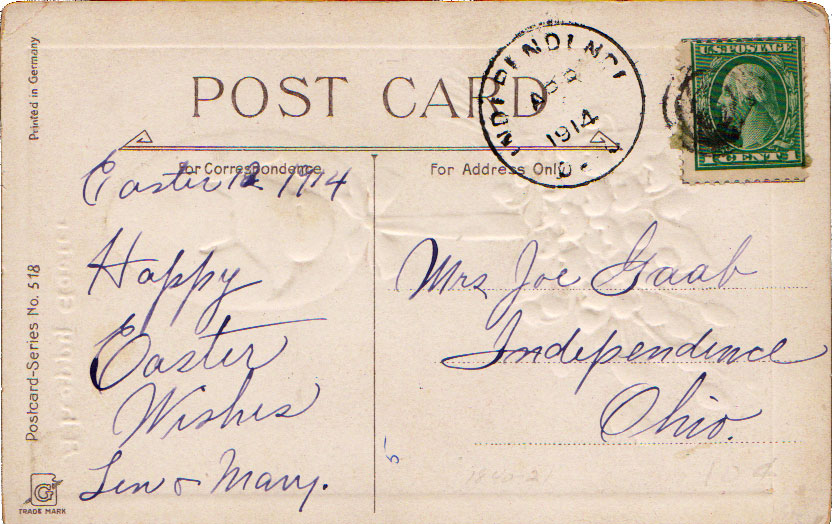 POST CARD
INDEPENDENCE
1914
O.
U.S. POSTAGE
1 CENT 1
For Correspondence
For Address Only
Easter 12 1914
Happy
Easter
Wishes
Len & Mary.
Mrs Joe Gaab
Independence
Ohio.
5
Printed in Germany
Postcard-Series No. 518
G
TRADE MARK